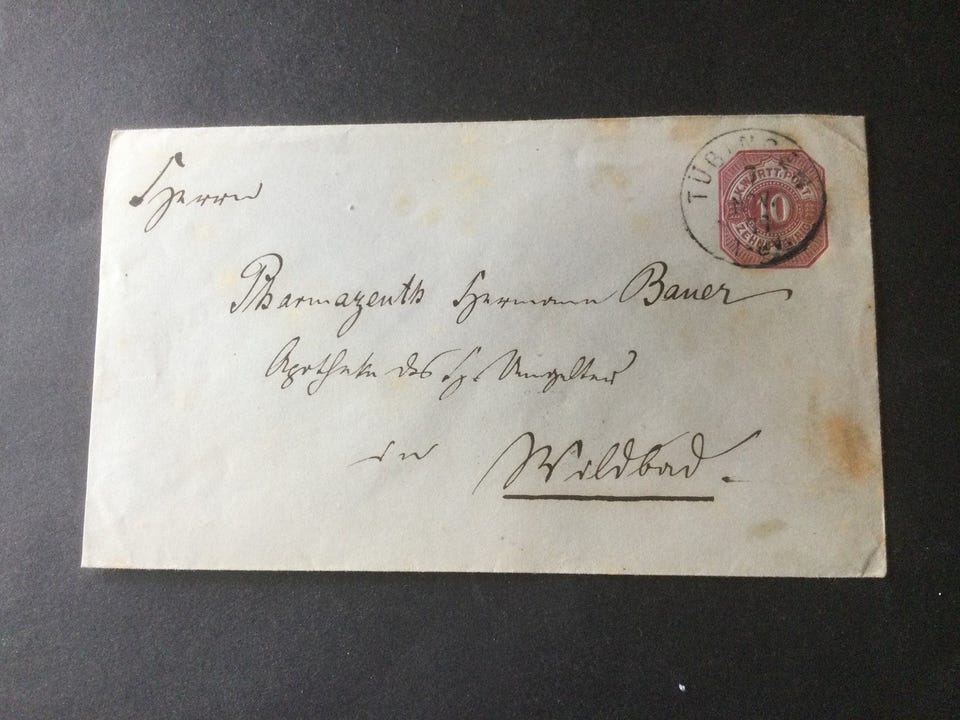 Herrn
Pharmazeuth Hermann Bauer
Apotheke des H. Umgelter
in Wildbad.
TÜBINGEN
K. WÜRTT. POST
10
ZEHN PFENNIG